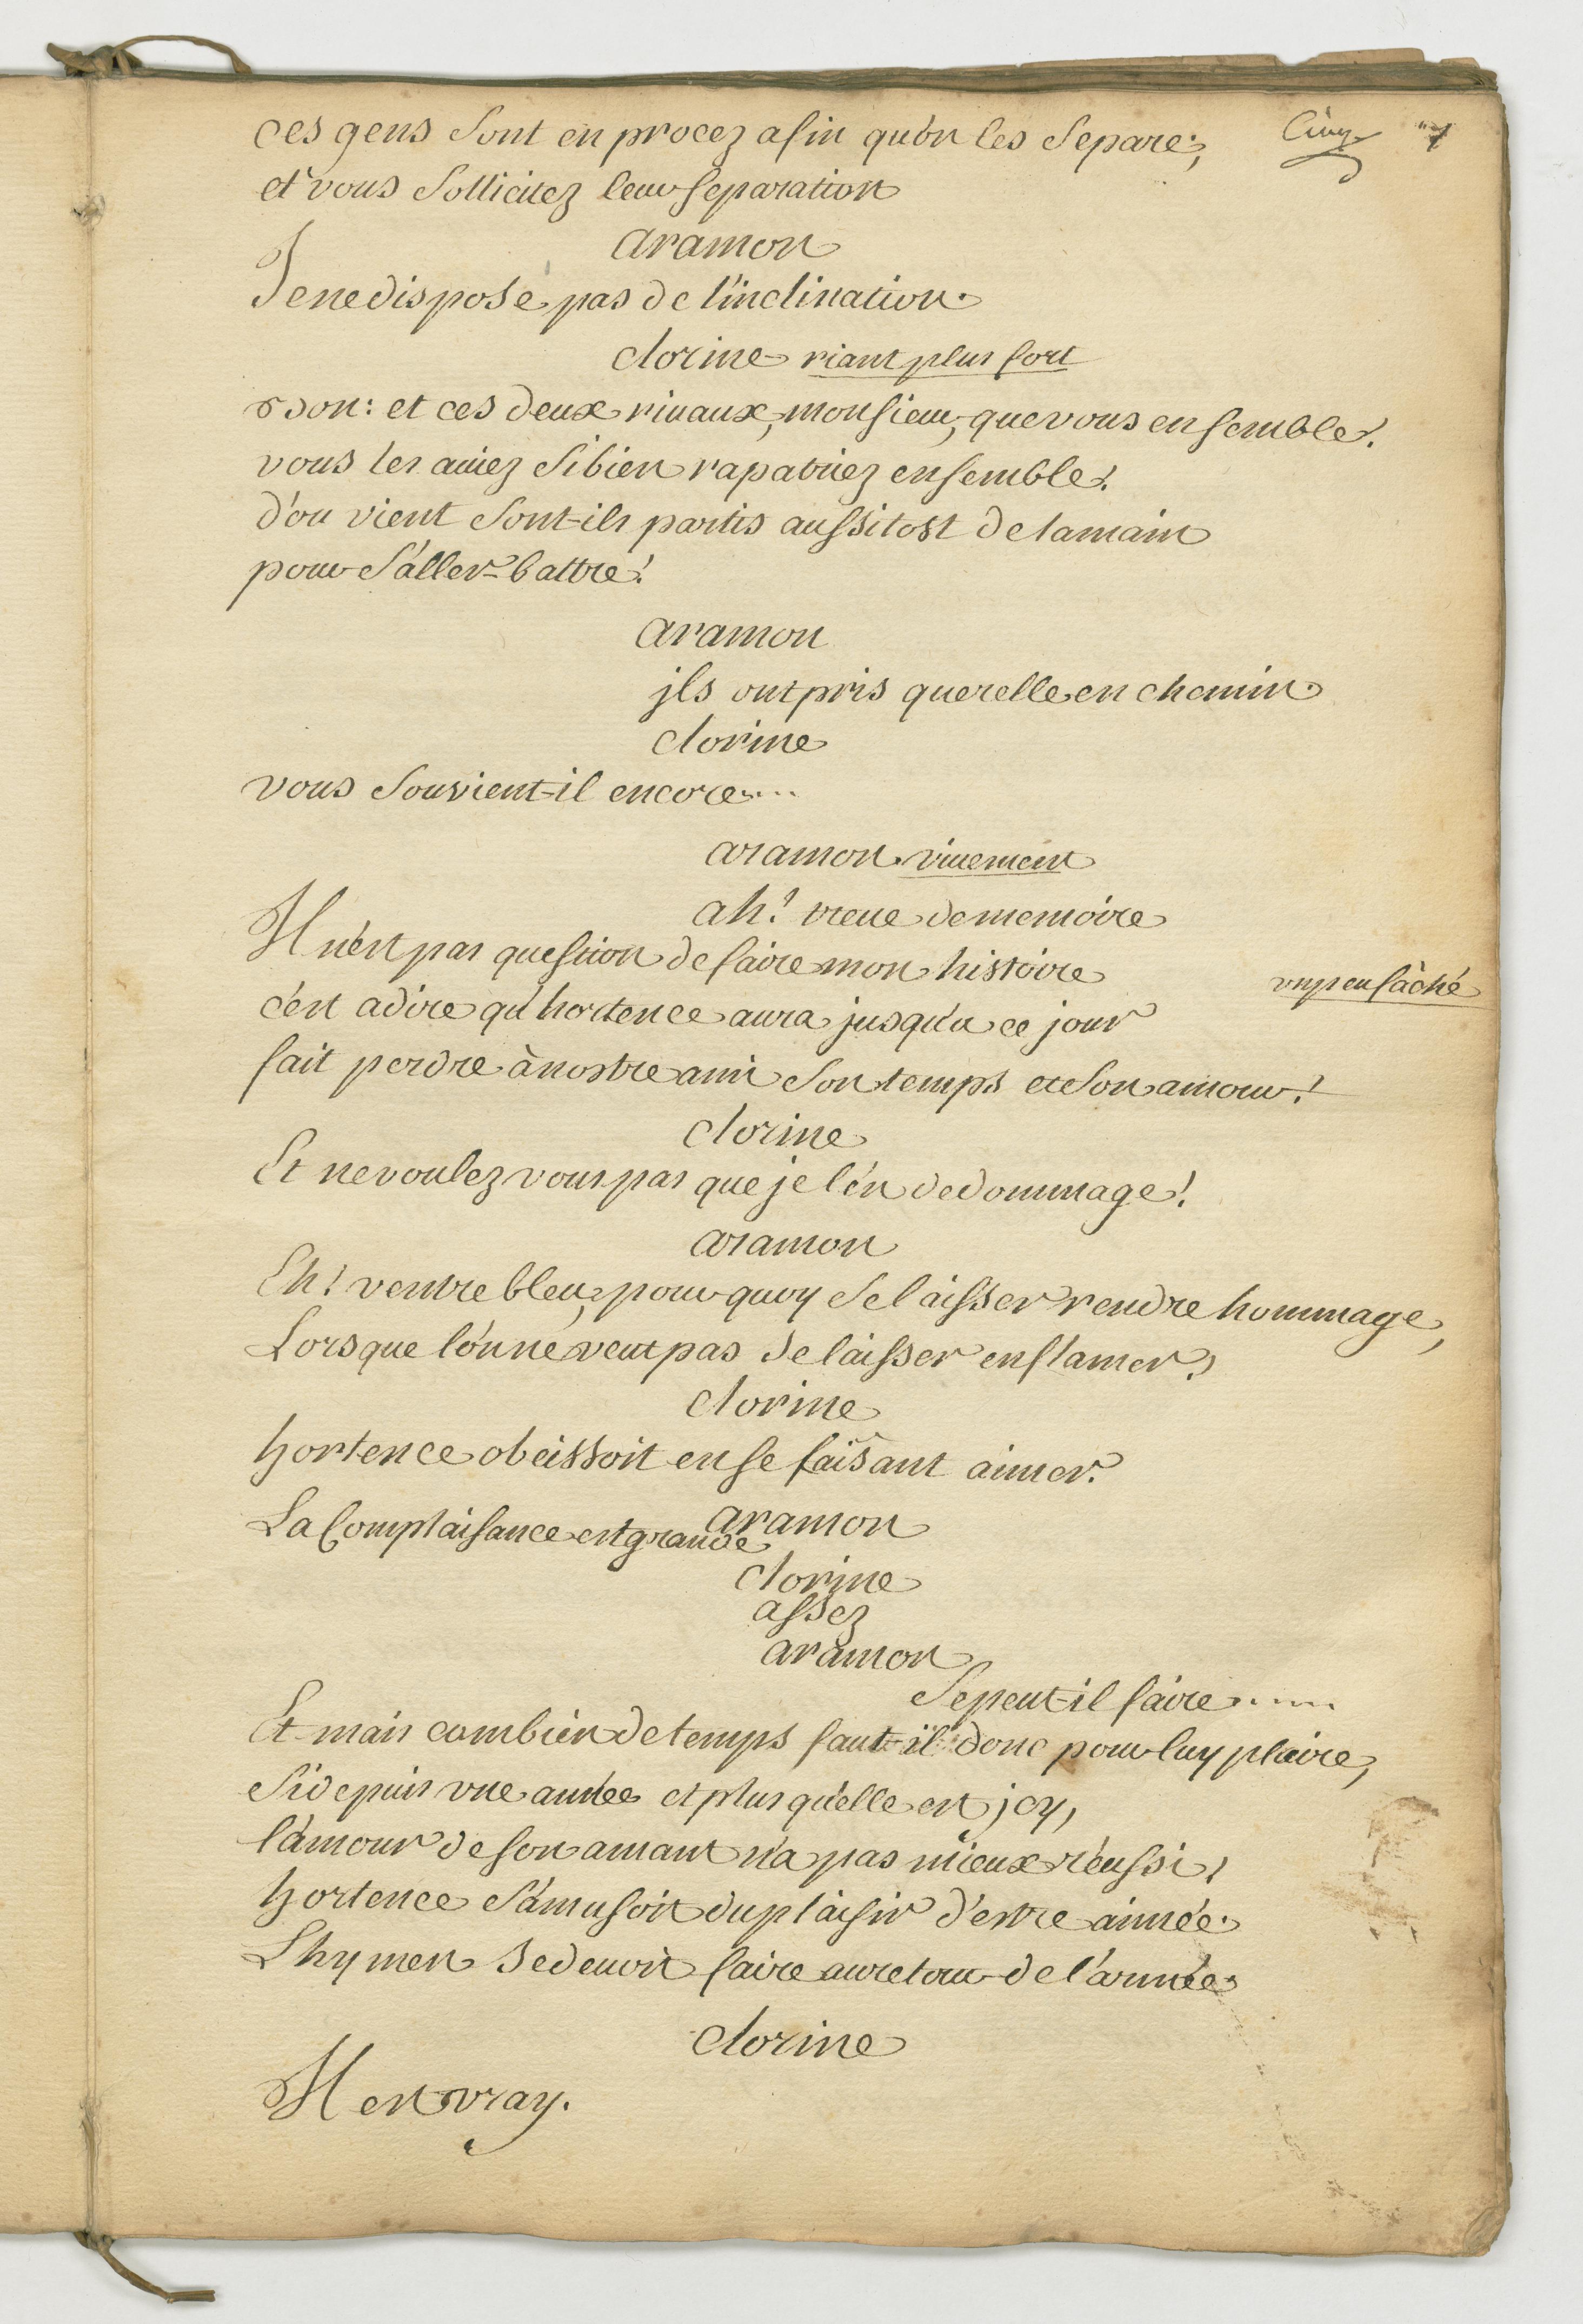 Cinq 7
ces gens sont en procez afin qu'on les separe;
et vous sollicitez leur separation
aramon
Je ne dispose pas de l'inclination.
clorine riant plus fort
bon: et ces deux riuaux, monsieur, que vous en semble?
vous les auiez si bien rapatriez ensemble!
d'ou vient sont-ils partis aussitost de la main
pour s'aller-battre?
aramon
jls ont pris querelle en chemin.
clorine
vous souvient-il encore....
aramon viuement
ah! treue de memoire
Il n'est pas question de faire mon histoire
vn peu fâché
c'est a dire qu'hortence aura jusqu'a ce jour
fait perdre à nostre ami son temps et son amour!
clorine
Et ne voulez vous pas que je l'en dedommage?
aramon
Eh! ventrebleu, pourquoy se laisser rendre hommage,
Lorsque l'on ne veut pas se laisser enflamer?
clorine
hortence obeissoit en se faisant aimer.
aramon
La Complaisance est grande
clorine
assez
aramon
Se peut-il faire.....
Et mais combien de temps faut-il donc pour luy plaire,
si depuis vne année et plus qu'elle est jcy,
l'amour de son amant n'a pas mieux réussi!
hortence s'amusoit du plaisir d'estre aimée.
L'hymen se deuoit faire au retour de l'armée.
clorine
Il est vray.